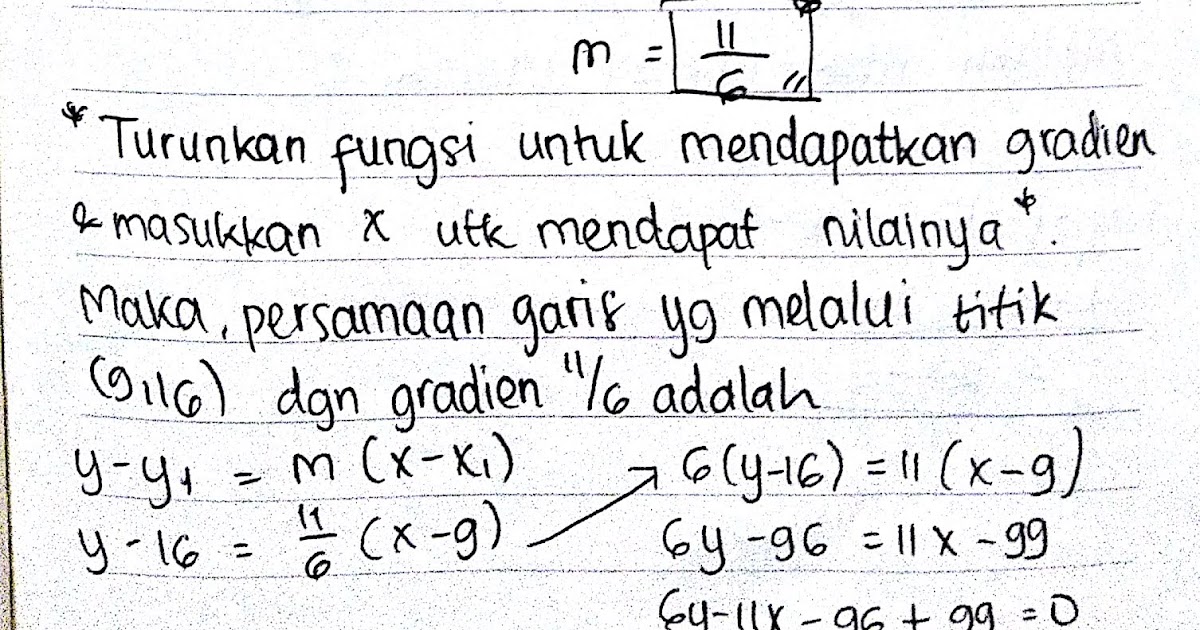 m = 11/6 //
* Turunkan fungsi untuk mendapatkan gradien
& masukkan x utk mendapat nilainya *.
Maka, persamaan garis yg melalui titik
(9,16) dgn gradien 11/6 adalah
y - y1 = m (x - x1)
y - 16 = 11/6 (x - 9)
6(y-16) = 11 (x-9)
6y - 96 = 11x - 99
6y - 11x - 96 + 99 = 0